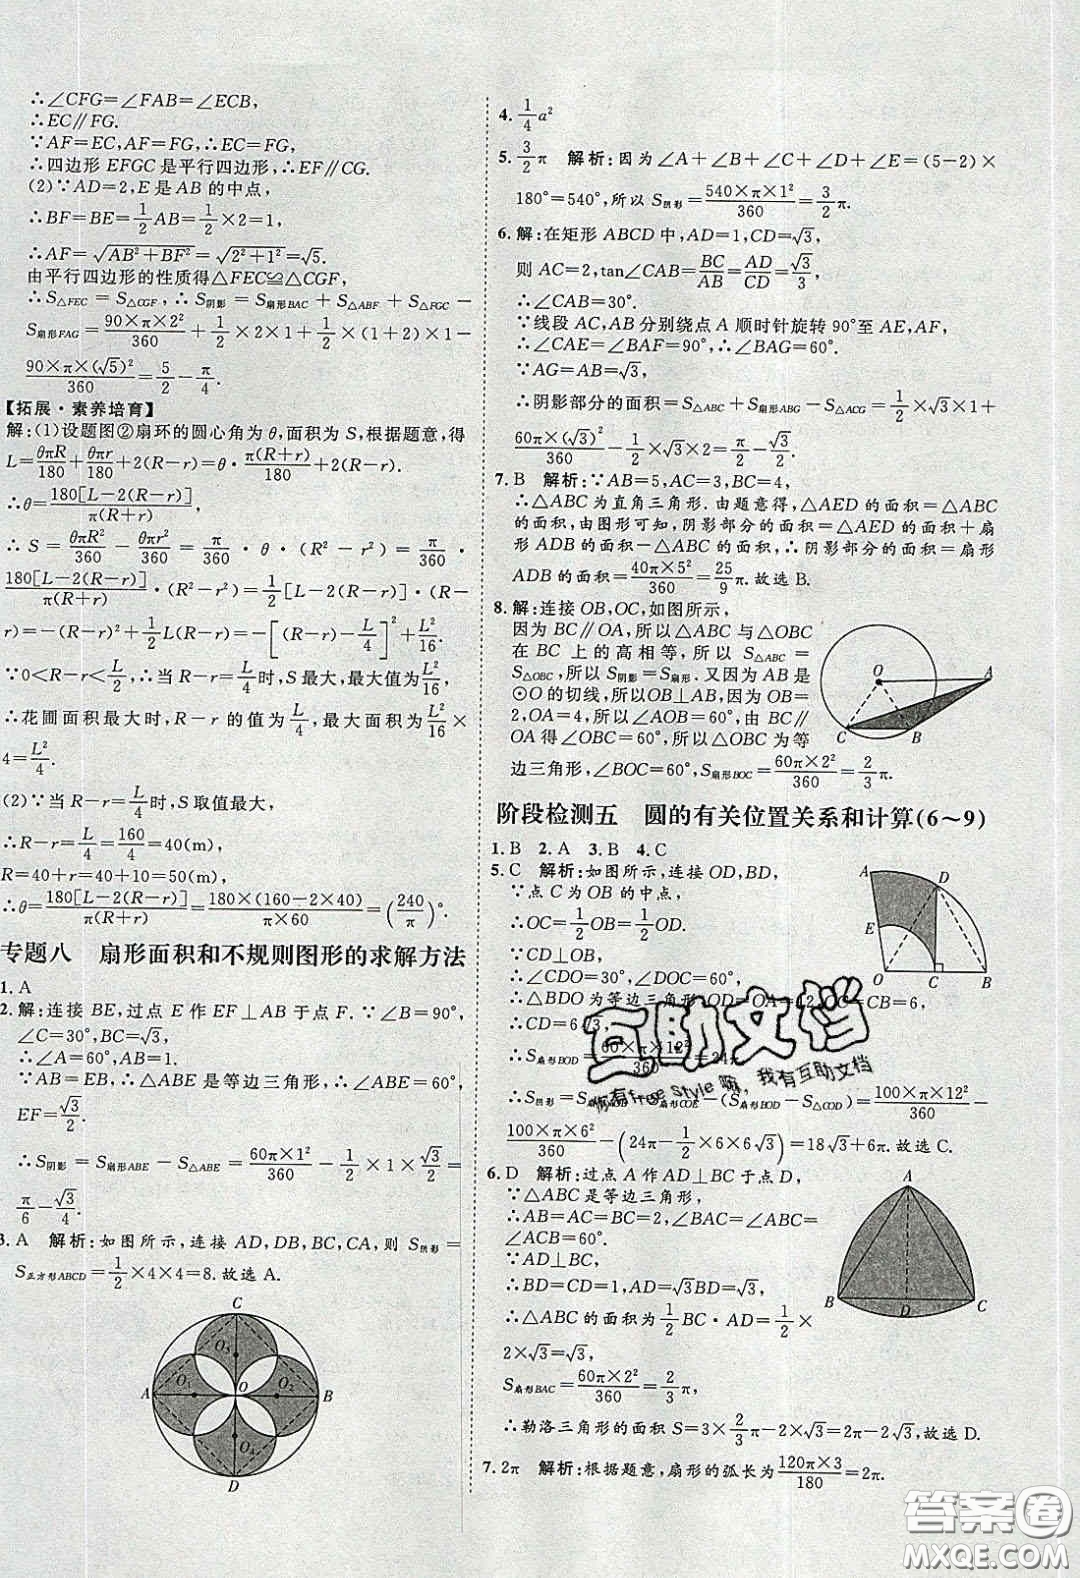 ∴∠CFG=∠FAB=∠ECB,
∴EC∥FG.
∵AF=EC,AF=FG,∴EC=FG,
∴四边形 EFGC 是平行四边形,∴EF∥CG.
(2)∵AD=2,E是 AB 的中点,
∴BF=BE=1/2AB=1/2×2=1,
∴AF=√(AB²+BF²)=√(2²+1²)=√5.
由平行四边形的性质得△FEC≌△CGF,
∴S△FEC=S△CGF,∴S阴影=S扇形BAC+S△ABF+S△FGC-
S扇形FAG=(90×π×2²)/360+1/2×2×1+1/2×(1+2)×1-
(90×π×(√5)²)/360=5/2-π/4.
【拓展·素养培育】
解:(1)设题图②扇环的圆心角为θ,面积为S,根据题意,得
L=θπR/180+θπr/180+2(R-r)=θ·π(R+r)/180+2(R-r).
∴θ=180[L-2(R-r)]/π(R+r),
∴S=θπR²/360-θπr²/360=π/360·θ·(R²-r²)=π/360·
180[L-2(R-r)]/π(R+r)·(R²-r²)=1/2[L-2(R-r)]·(R-
r)=-(R-r)²+1/2L(R-r)=-[(R-r)-L/4]²+L²/16.
∵0<R-r<L/2,∴当R-r=L/4时,S最大,最大值为L²/16,
∴花圃面积最大时,R-r的值为L/4,最大面积为L²/16×
4=L²/4.
(2)∵当R-r=L/4时,S取值最大,
∴R-r=L/4=160/4=40(m),
R=40+r=40+10=50(m),
∴θ=180[L-2(R-r)]/π(R+r)=180×(160-2×40)/π×60=(240/π)°.
专题八 扇形面积和不规则图形的求解方法
1. A
2. 解:连接 BE,过点 E 作 EF⊥AB 于点 F.∵∠B=90°,
∠C=30°,BC=√3,
∴∠A=60°,AB=1.
∵AB=EB,∴△ABE是等边三角形,∴∠ABE=60°,
EF=√3/2.
∴S阴影=S扇形ABE-S△ABE=(60π×1²)/360-1/2×1×√3/2=
π/6-√3/4.
3. A 解析:如图所示,连接 AD,DB,BC,CA,则 S阴影=
S正方形ABCD=1/2×4×4=8.故选A.
C
O₃
A O₁ O O₂ B
O₄
D
4. 1/4a²
5. 3/2π 解析:因为∠A+∠B+∠C+∠D+∠E=(5-2)×
180°=540°,所以S阴影=(540×π×1²)/360=3/2π.
6. 解:在矩形 ABCD 中,AD=1,CD=√3,
则 AC=2,tan∠CAB=BC/AB=AD/CD=√3/3.
∴∠CAB=30°.
∵线段 AC,AB 分别绕点 A 顺时针旋转 90°至 AE,AF,
∴∠CAE=∠BAF=90°,∴∠BAG=60°.
∵AG=AB=√3,
∴阴影部分的面积=S△ABC+S扇形ABG-S△ACG=1/2×√3×1+
60π×(√3)²/360-1/2×√3×1/2×2=π/2.
7. B 解析:∵AB=5,AC=3,BC=4,
∴△ABC 为直角三角形.由题意得,△AED 的面积=△ABC
的面积,由图形可知,阴影部分的面积=△AED 的面积+扇
形 ADB 的面积-△ABC 的面积,∴阴影部分的面积=扇形
ADB 的面积=(40π×5²)/360=25/9π.故选B.
8. 解:连接 OB,OC,如图所示,
因为 BC∥OA,所以△ABC 与△OBC
在 BC 上的高相等,所以 S△ABC=
S△OBC,所以 S阴影=S扇形.又因为AB是
⊙O的切线,所以OB⊥AB,因为OB=
2,OA=4,所以∠AOB=60°,由 BC∥
OA 得∠OBC=60°,所以△OBC 为等
边三角形,∠BOC=60°,S扇形BOC=(60π×2²)/360=2/3π.
O A
C B
阶段检测五 圆的有关位置关系和计算(6~9)
1. B 2. A 3. B 4. C
5. C 解析:如图所示,连接OD,BD,
∵点 C 为 OB 的中点,
∴OC=1/2OB=1/2OD,
∵CD⊥OB,
∴∠CDO=30°,∠DOC=60°,
∴△BDO为等边三角形,OD=OA=12,OC=CB=6,
∴CD=6√3,
∴S扇形BOD=(60×π×12²)/360=24π,
∴S阴影=S扇形AOB-S扇形COE-(S扇形BOD-S△COD)=(100×π×12²)/360-
(100×π×6²)/360-(24π-1/2×6×6√3)=18√3+6π.故选C.
A D
E
O C B
6. D 解析:过点 A 作 AD⊥BC 于点 D,
∵△ABC是等边三角形,
∴AB=AC=BC=2,∠BAC=∠ABC=
∠ACB=60°.
∵AD⊥BC,
∴BD=CD=1,AD=√3BD=√3,
∴△ABC 的面积为1/2BC·AD=1/2×
2×√3=√3,
S扇形BAC=(60π×2²)/360=2/3π,
∴勒洛三角形的面积 S=3×2/3π-2×√3=2π-2√3,故选D.
A
B D C
7. 2π 解析:根据题意,扇形的弧长为(120π×3)/180=2π.
互助文档
你有free style嘛,我有互助文档
答案圈
MXQE.COM